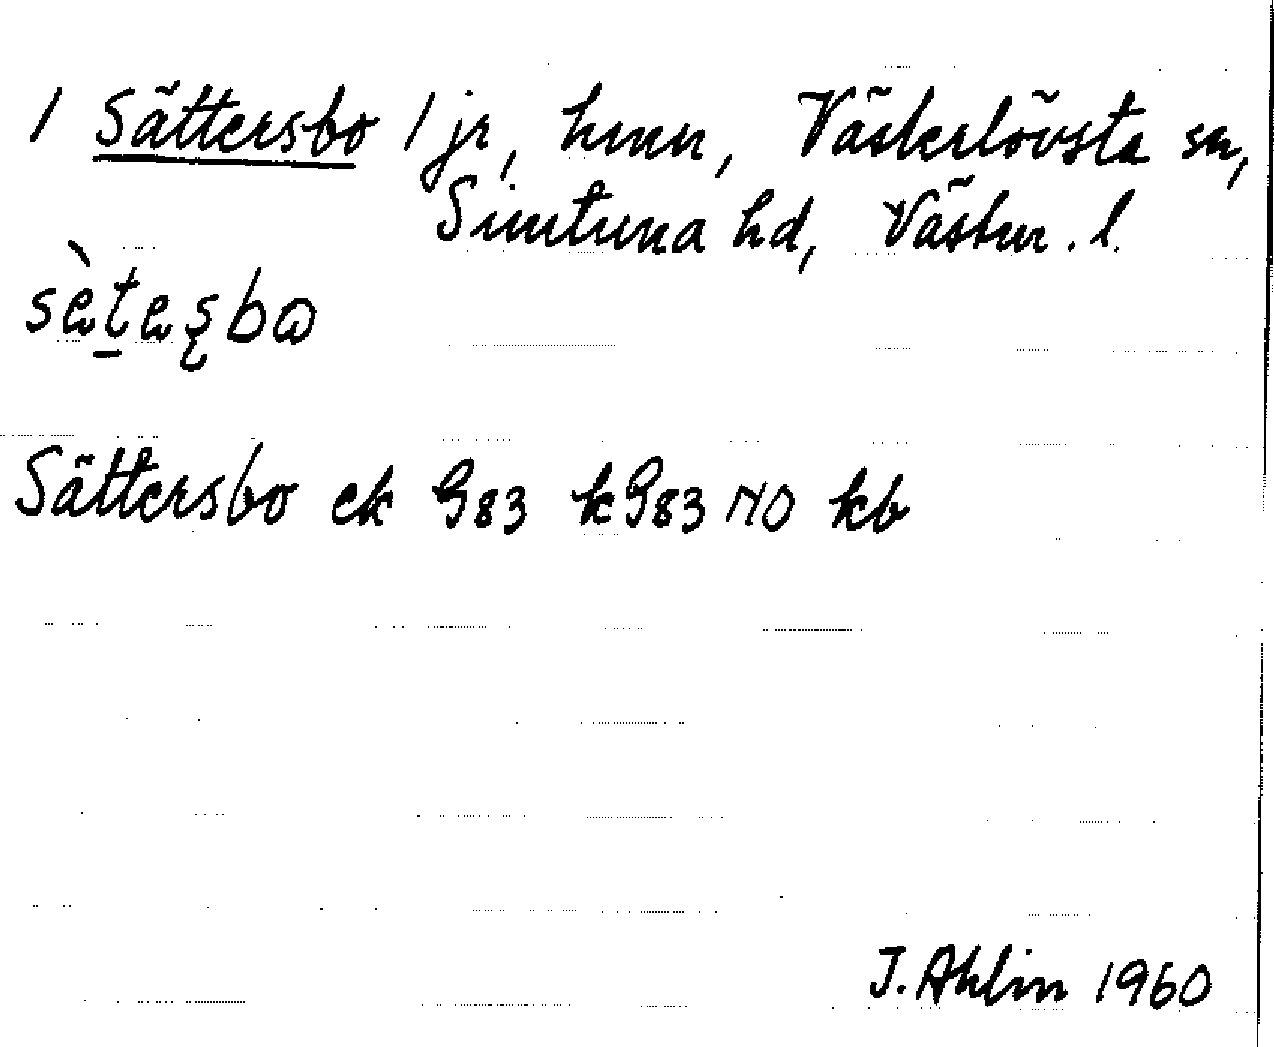 1 Sättersbo 1 jr, hmn, Västerlövsta sn,
Simtuna hd, Västm. l.
sätesbo
Sättersbo ek 983 k 983 NO kb
J. Ahlin 1960